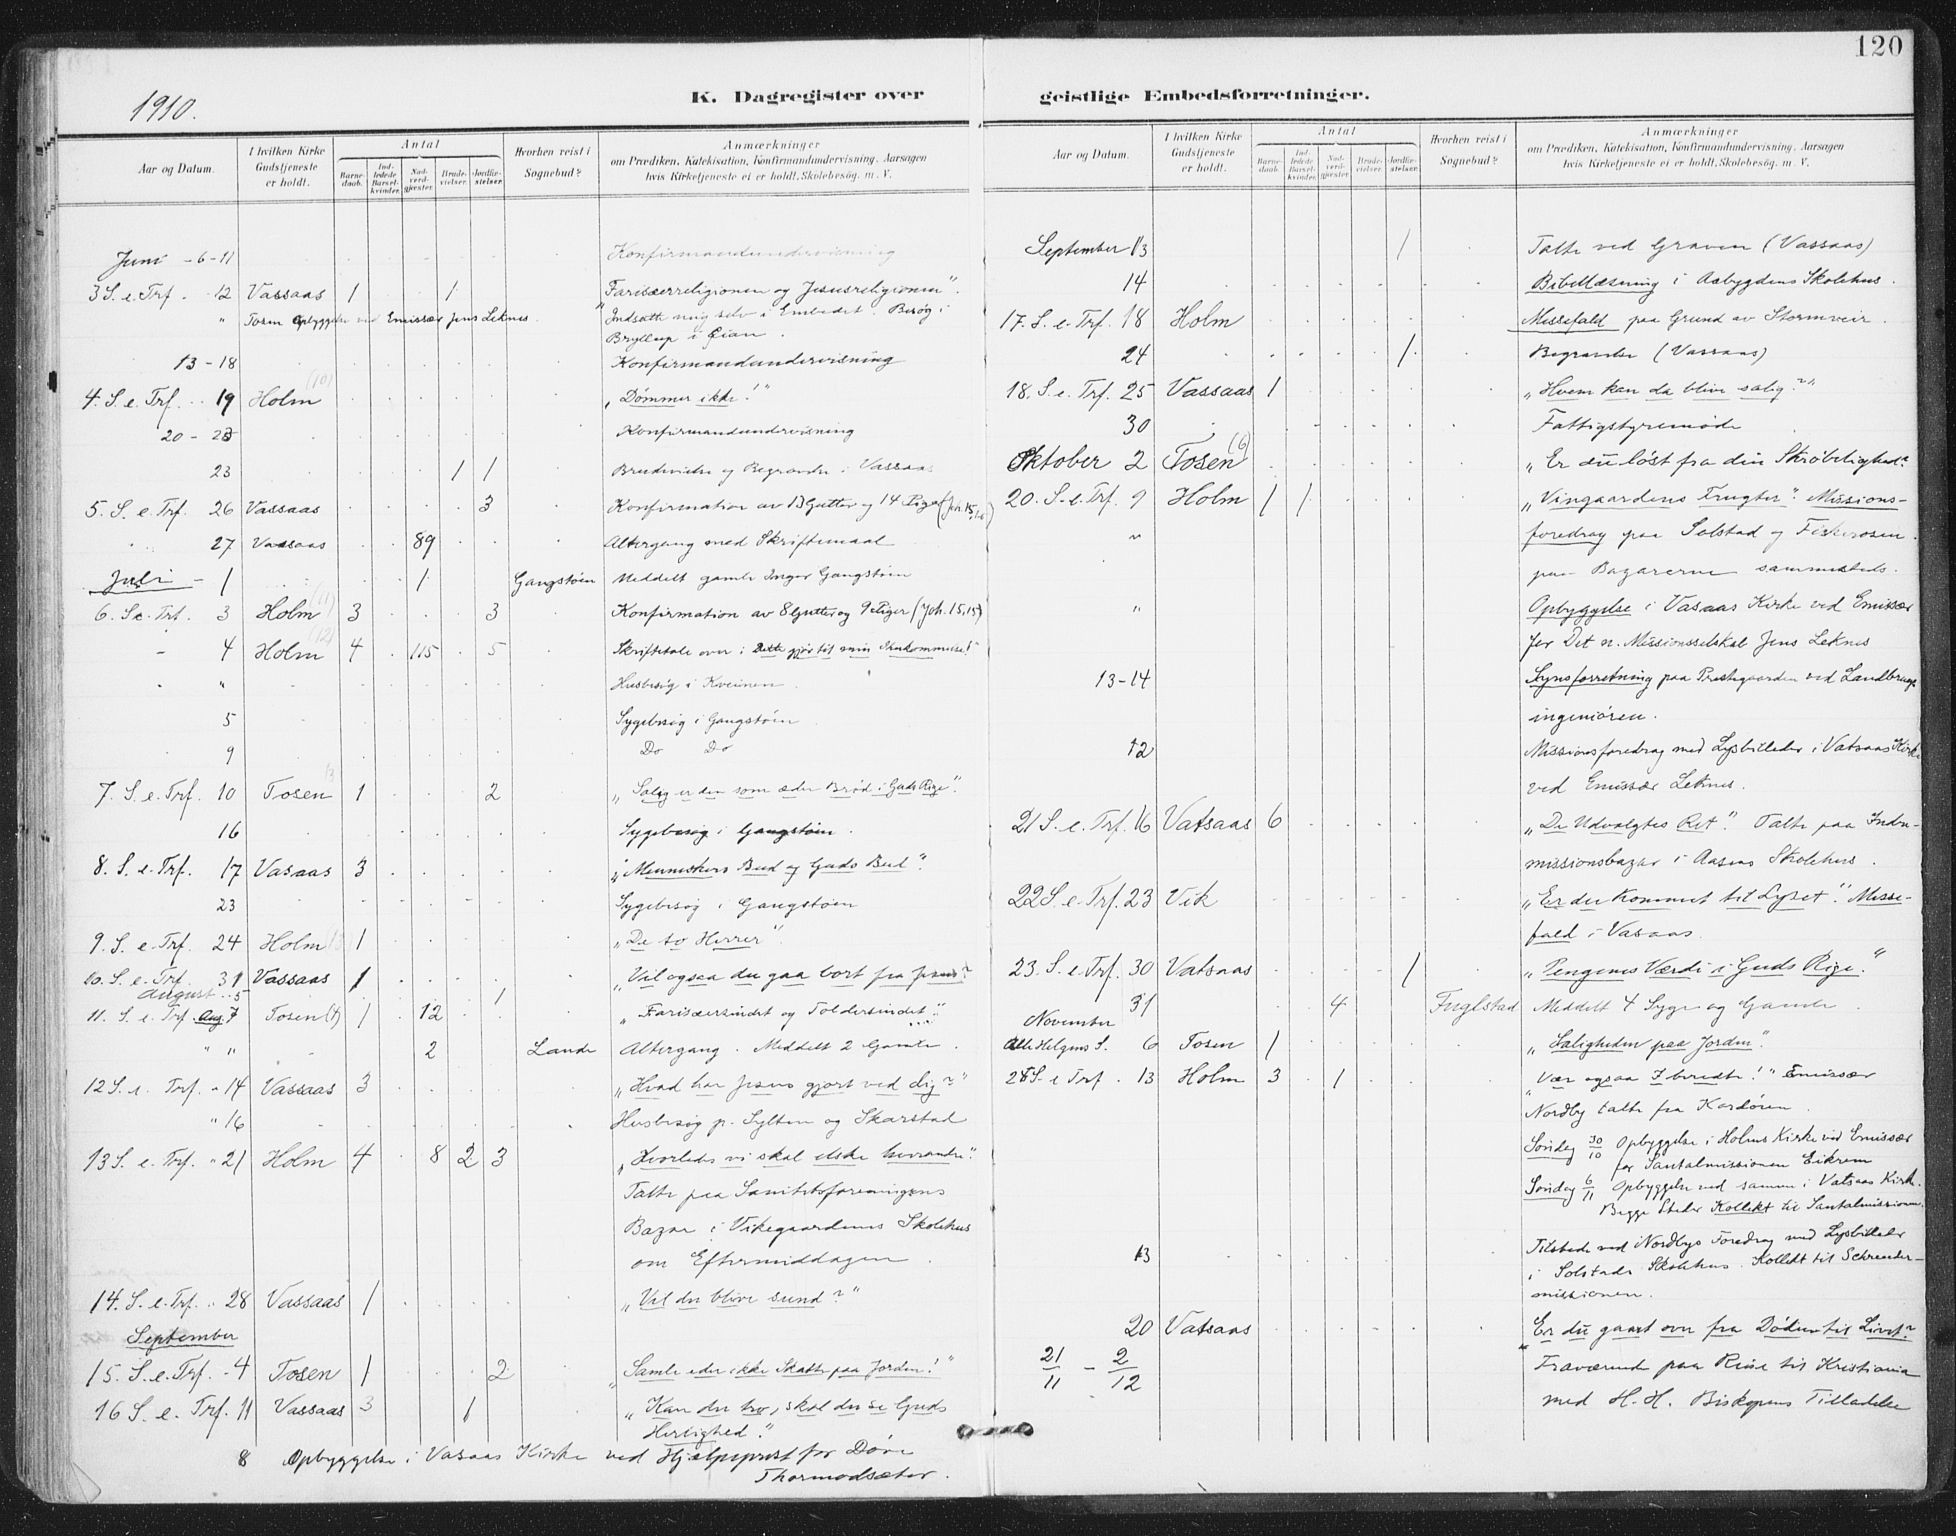 120
1910.
K. Dagregister over
Aar og Datum.
I hvilken Kirke Gudstjeneste er holdt.
Antal
Barnedaab.
Indledede Barselkvinder.
Nadverdgjæster.
Brudevielser.
Jordfæstelser.
Hvorhen reist i Sognebud?
Anmærkninger
om Prædiken, Katekisation, Konfirmandundervisning, Aarsagen
hvis Kirketjeneste ei er holdt, Skolebesøg. m. V.
Juni - 6-11 Konfirmandundervisning
3 S. e. Trf. 12 Vassaas 1 1 "Farisæerreligionen og Jesusreligionen".
" Tosen Opbyggelse ved Emissær Jens Leknes. Indsatte mig selv i Embedet. Besøg i
Bryllup i Eian.
13-18 Konfirmandundervisning
4. S. e. Trf. 19 Holm (10) "Dömmer ikke!"
20-23 Konfirmandundervisning
23 1 1 Brudevielse og Begravelse i Vassaas
5. S. e. Trf. 26 Vassaas 3 Konfirmation av 13 Gutter og 14 Piger (Joh. 15,16)
27 Vassaas 89 Altergang med Skriftemaal
Juli - 1 1 Gangstøen Meddelt gamle Inger Gangstøen
6. S. e. Trf. 3 Holm (11) 3 3 Konfirmation av 8 Gutter og 9 Piger (Joh. 15,15)
4 Holm (12) 4 115 5 Skriftetale over: Dette gjør til min Ihukommelse!
" Husbesøg i Kveinen.
5 Sygebesøg i Gangstøen
9 Do Do
7. S. e. Trf. 10 Tosen 13 1 2 "Salig er den som æder Brød i Guds Rige".
16 Sygebesøg i Gangstøen.
8. S. e. Trf. 17 Vasaas 3 "Menneskers Bud og Guds Bud".
23 Sygebesøg i Gangstøen
9. S. e. Trf. 24 Holm 1 "De to Herrer".
10. S. e. Trf. 31 Vassaas 1 "Vil ogsaa du gaa bort fra Jesus?
August 5 1
11. S. e. Trf. Aug. 7 Tosen 1 12 "Farisæersindet og Toldersindet".
" " 2 Lande Altergang. Meddelt 2 Gamle.
12 S. e. Trf. 14 Vassaas 3 "Hvad har Jesus gjort ved dig?"
" 16 Husbesøg p. Sylten og Skarstad
13 S. e. Trf. " 21 Holm 4 8 2 3 "Hvorledes vi skal elske hverandre".
Talte paa Sanitetsforeningens
Bazar i Vikegaardenes Skolehus
om Eftermiddagen.
14. S. e. Trf. 28 Vassaas 1 "Vil du blive sund?"
September
15. S. e. Trf. - 4 Tosen 1 2 "Samle eder ikke Skatte paa Jorden!"
16 S. e. Trf. 11 Vassaas 3 1 "Kan du tro, skal du se Guds
Herlighed".
8 Opbyggelse i Vasaas Kirke ved Hjælpeprest for Døve
Thormodsæter.
geistlige Embedsforretninger.
Aar og Datum.
I hvilken Kirke Gudstjeneste er holdt.
Antal
Barnedaab.
Indledede Barselkvinder.
Nadverdgjæster.
Brudevielser.
Jordfæstelser.
Hvorhen reist i Sognebud?
Anmærkninger
om Prædiken, Katekisation, Konfirmandundervisning, Aarsagen
hvis Kirketjeneste ei er holdt, Skolebesøg. m. V.
September 13 1 Talte ved Graven (Vassaas)
14 Bibellæsning i Aabygdens Skolehus.
17. S. e. Trf. 18 Holm Messefald paa Grund av Stormveir.
24 1 Begravelse (Vassaas)
18. S. e. Trf. 25 Vassaas 1 "Hvem kan da blive salig?"
30 Fattigstyremöde
Oktober 2 Tosen (6) "Er du löst fra din Skröbelighed?
20. S. e. Trf. 9 Holm 1 1 "Vingaardens Frugter". Missions-
" foredrag paa Solstad og Fiskerosen
paa Bazarerne sammesteds.
" Opbyggelse i Vasaas Kirke ved Emissær
for Det n. Missionsselskab Jens Leknes
13-14 Synsforretning paa Prestegaarden ved Landbrugs-
ingeniören.
12 Missionsforedrag med Lysbilleder i Vatsaas Kirke
ved Emissær Leknes.
21 S. e. Trf. 16 Vatsaas 6 "De Udvalgtes Ret". Talte paa Indre-
missionsbazar i Aasens Skolehus.
22 S. e. Trf. 23 Vik "Er du kommet til Lyset". Messe-
fald i Vasaas.
23. S. e. Trf. 30 Vatsaas 1 "Pengenes Værdi i Guds Rige."
31 4 Fuglstad Meddelt 4 Syge og Gamle.
November
Alle Helgens S. 6 Tosen 1 "Saligheden paa Jorden".
25 S. e. Trf. 13 Holm 3 1 "Vær ogsaa I beredte!" Emissær
Nordby talte fra Kordören.
Söndag 30/10 Opbyggelse i Holms Kirke ved Emissær
for Santalmissionen Eikrem
Söndag 6/11 Opbyggelse ved samme i Vatsaas Kirke.
Begge Steder Kollekt til Santalmissionen.
13 Tilstede ved Nordbys Foredrag med Lysbilleder
i Solstads Skolehus. Kollekt til Schreuder-
missionen.
20 Vatsaas "Er du gaaet over fra Döden til Livet?
21/11 - 2/12 Fraværende paa Reise til Kristiania
med H. H. Biskopens Tilladelse